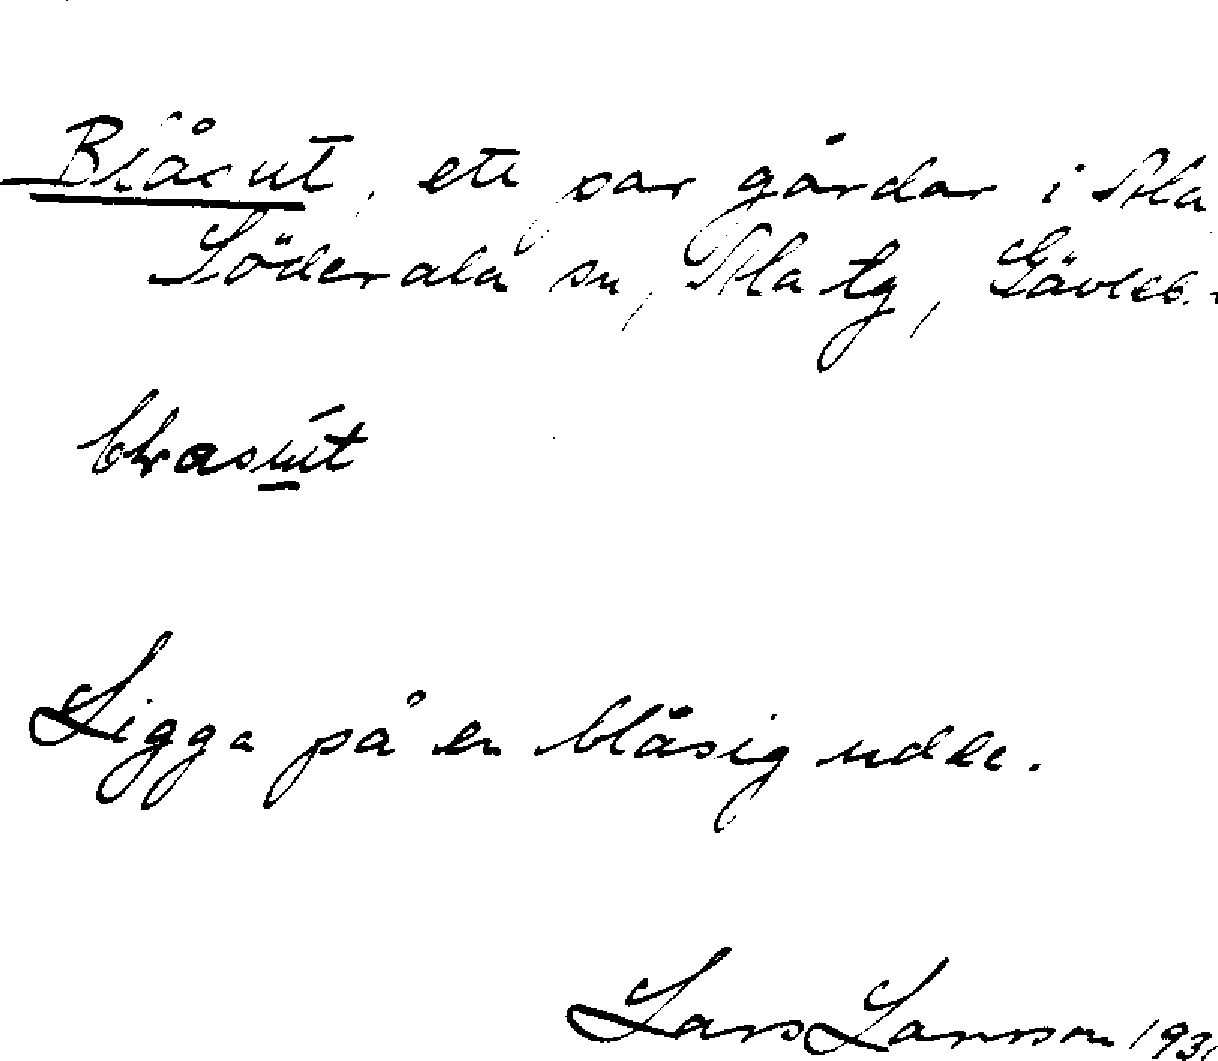 Blåsut, ett par gårdar i Ala
Söderala sn, Ala tg, Gävleb.
blasut
Ligga på en blåsig udde.
Lars Larsson 193